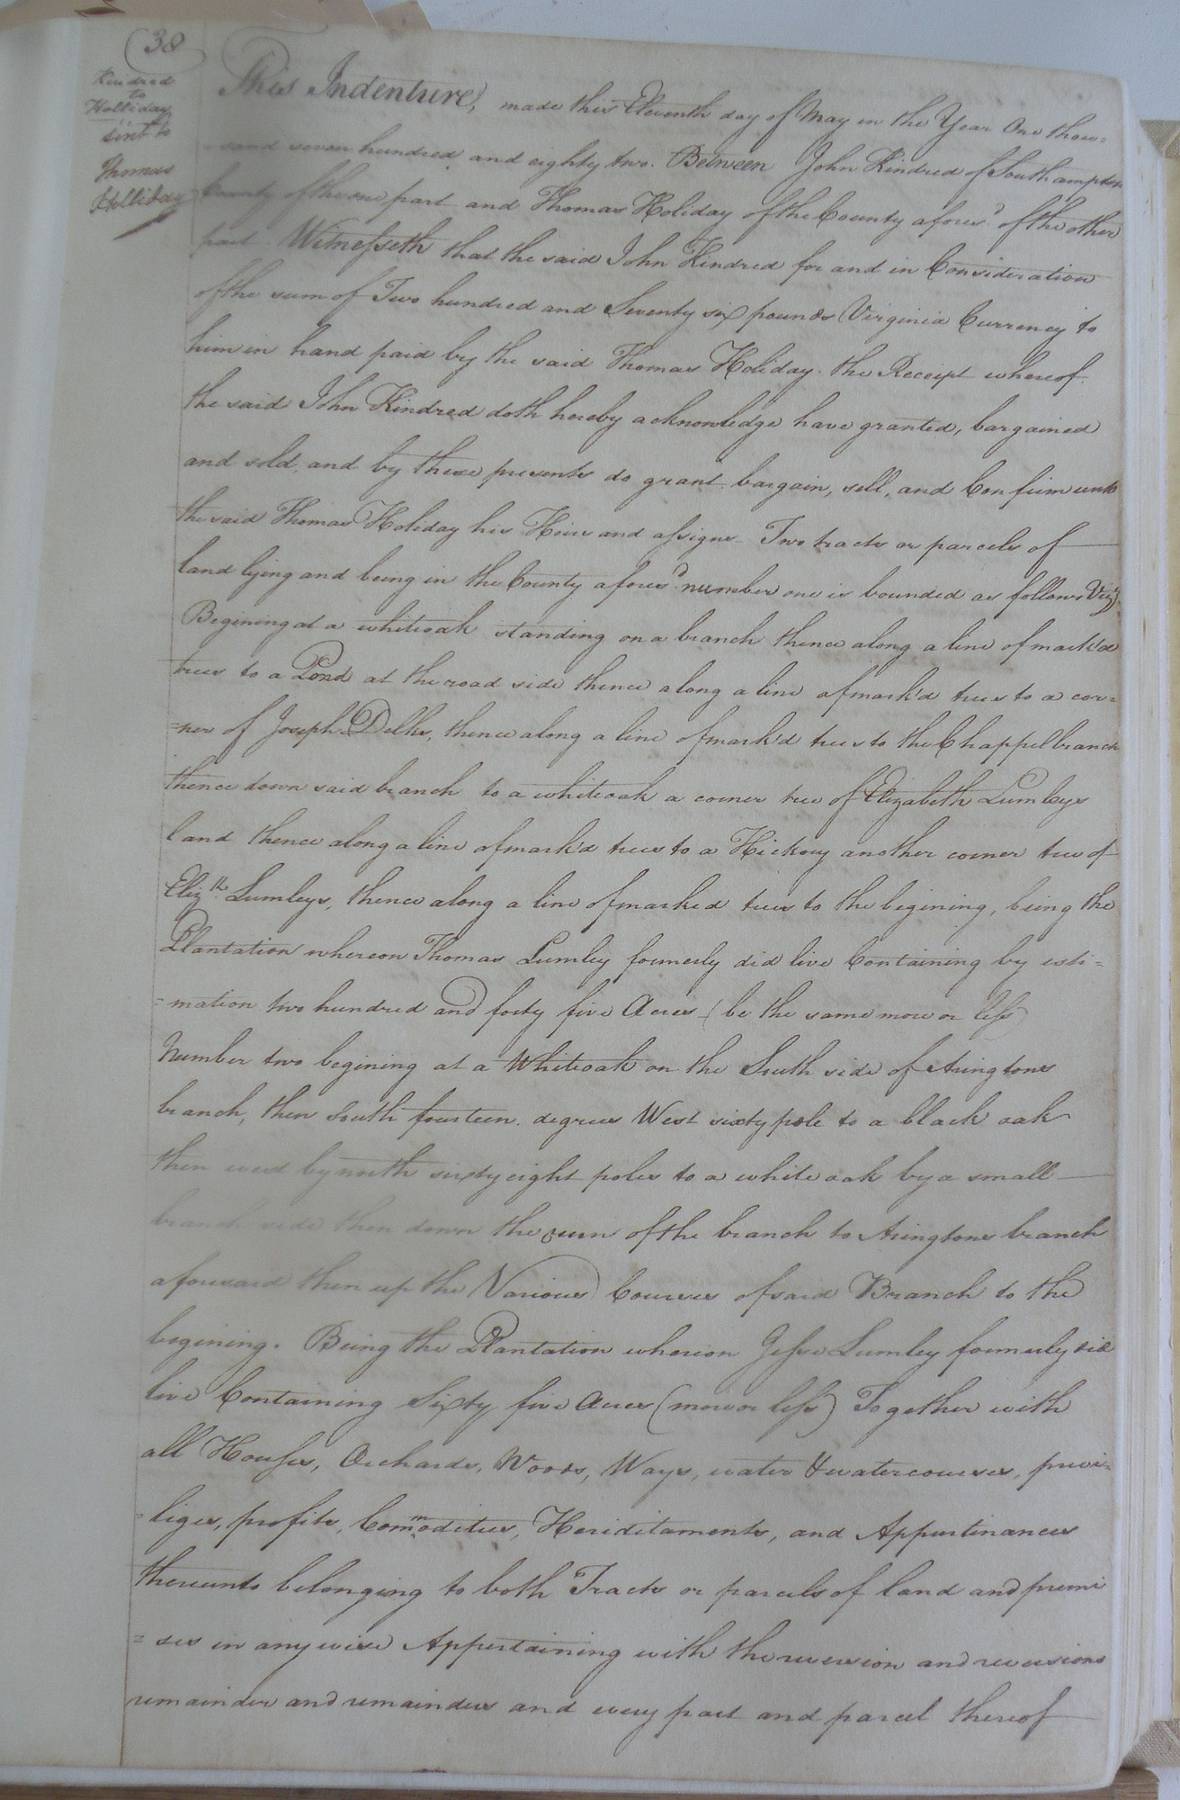 38
Kindred
to
Holliday
sent to
Thomas
Holliday
This Indenture, made this Eleventh day of May in the Year One thou=
=sand seven hundred and eighty two. Between John Kindred of Southampton
County of the one part and Thomas Holiday of the County afores.d of the other
part Witnesseth that the said John Kindred for and in Consideration
of the sum of Two hundred and Seventy six pounds Virginia Currency to
him in hand paid by the said Thomas Holiday the Receipt whereof
the said John Kindred doth hereby acknowledge have granted, bargained
and sold, and by these presents do grant bargain, sell, and Confirm unto
the said Thomas Holiday his Heirs and assigns Two tracts or parcels of
land lying and being in the County afores.d number one is bounded as follows Viz.t
Begining at a whiteoak standing on a branch thence along a line of mark'd
trees to a Pond at the road side thence along a line of mark'd trees to a cor=
=ner of Joseph Delks, thence along a line of mark'd trees to the Chappel branch
thence down said branch to a whiteoak a corner tree of Elizabeth Lumleys
land thence along a line of mark'd trees to a Hickory another corner tree of
Eliz.th Lumleys, thence along a line of marked trees to the begining, being the
Plantation whereon Thomas Lumley formerly did live Containing by esti=
=mation two hundred and forty five Acres (be the same more or less)
Number two begining at a Whiteoak on the South side of Aringtons
branch, then South fourteen degrees West sixty pole to a black oak
then west by north sixty eight poles to a white oak by a small
branch side then down the run of the branch to Aringtons branch
aforesaid then up the Various Courses of said Branch to the
begining. Being the Plantation whereon Jesse Lumley formerly did
live Containing Sixty five Acres (more or less) Together with
all Houses, Orchards, Woods, Ways, water & watercourses, privi=
=liges, profits, Commodities, Heriditaments, and Appurtinances
thereunto belonging to both Tracts or parcels of land and premi
=ses in any wise Appertaining with the reversion and reversions
remainder and remainders and every part and parcel thereof